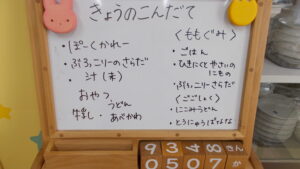 きょうのこんだて
・ぽーくかれー
・ぶろっこりーのさらだ
・汁(米)
おやつ
うどん
牛乳・あべかわ
〈ももぐみ〉
・ごはん
・ひきにくとやさいの
にもの
・ぶろっこりーさらだ
〈ごごしょく〉
・にこみうどん
・とうにゅうばななな
9 3 4 8 きん
0 5 0 7 か